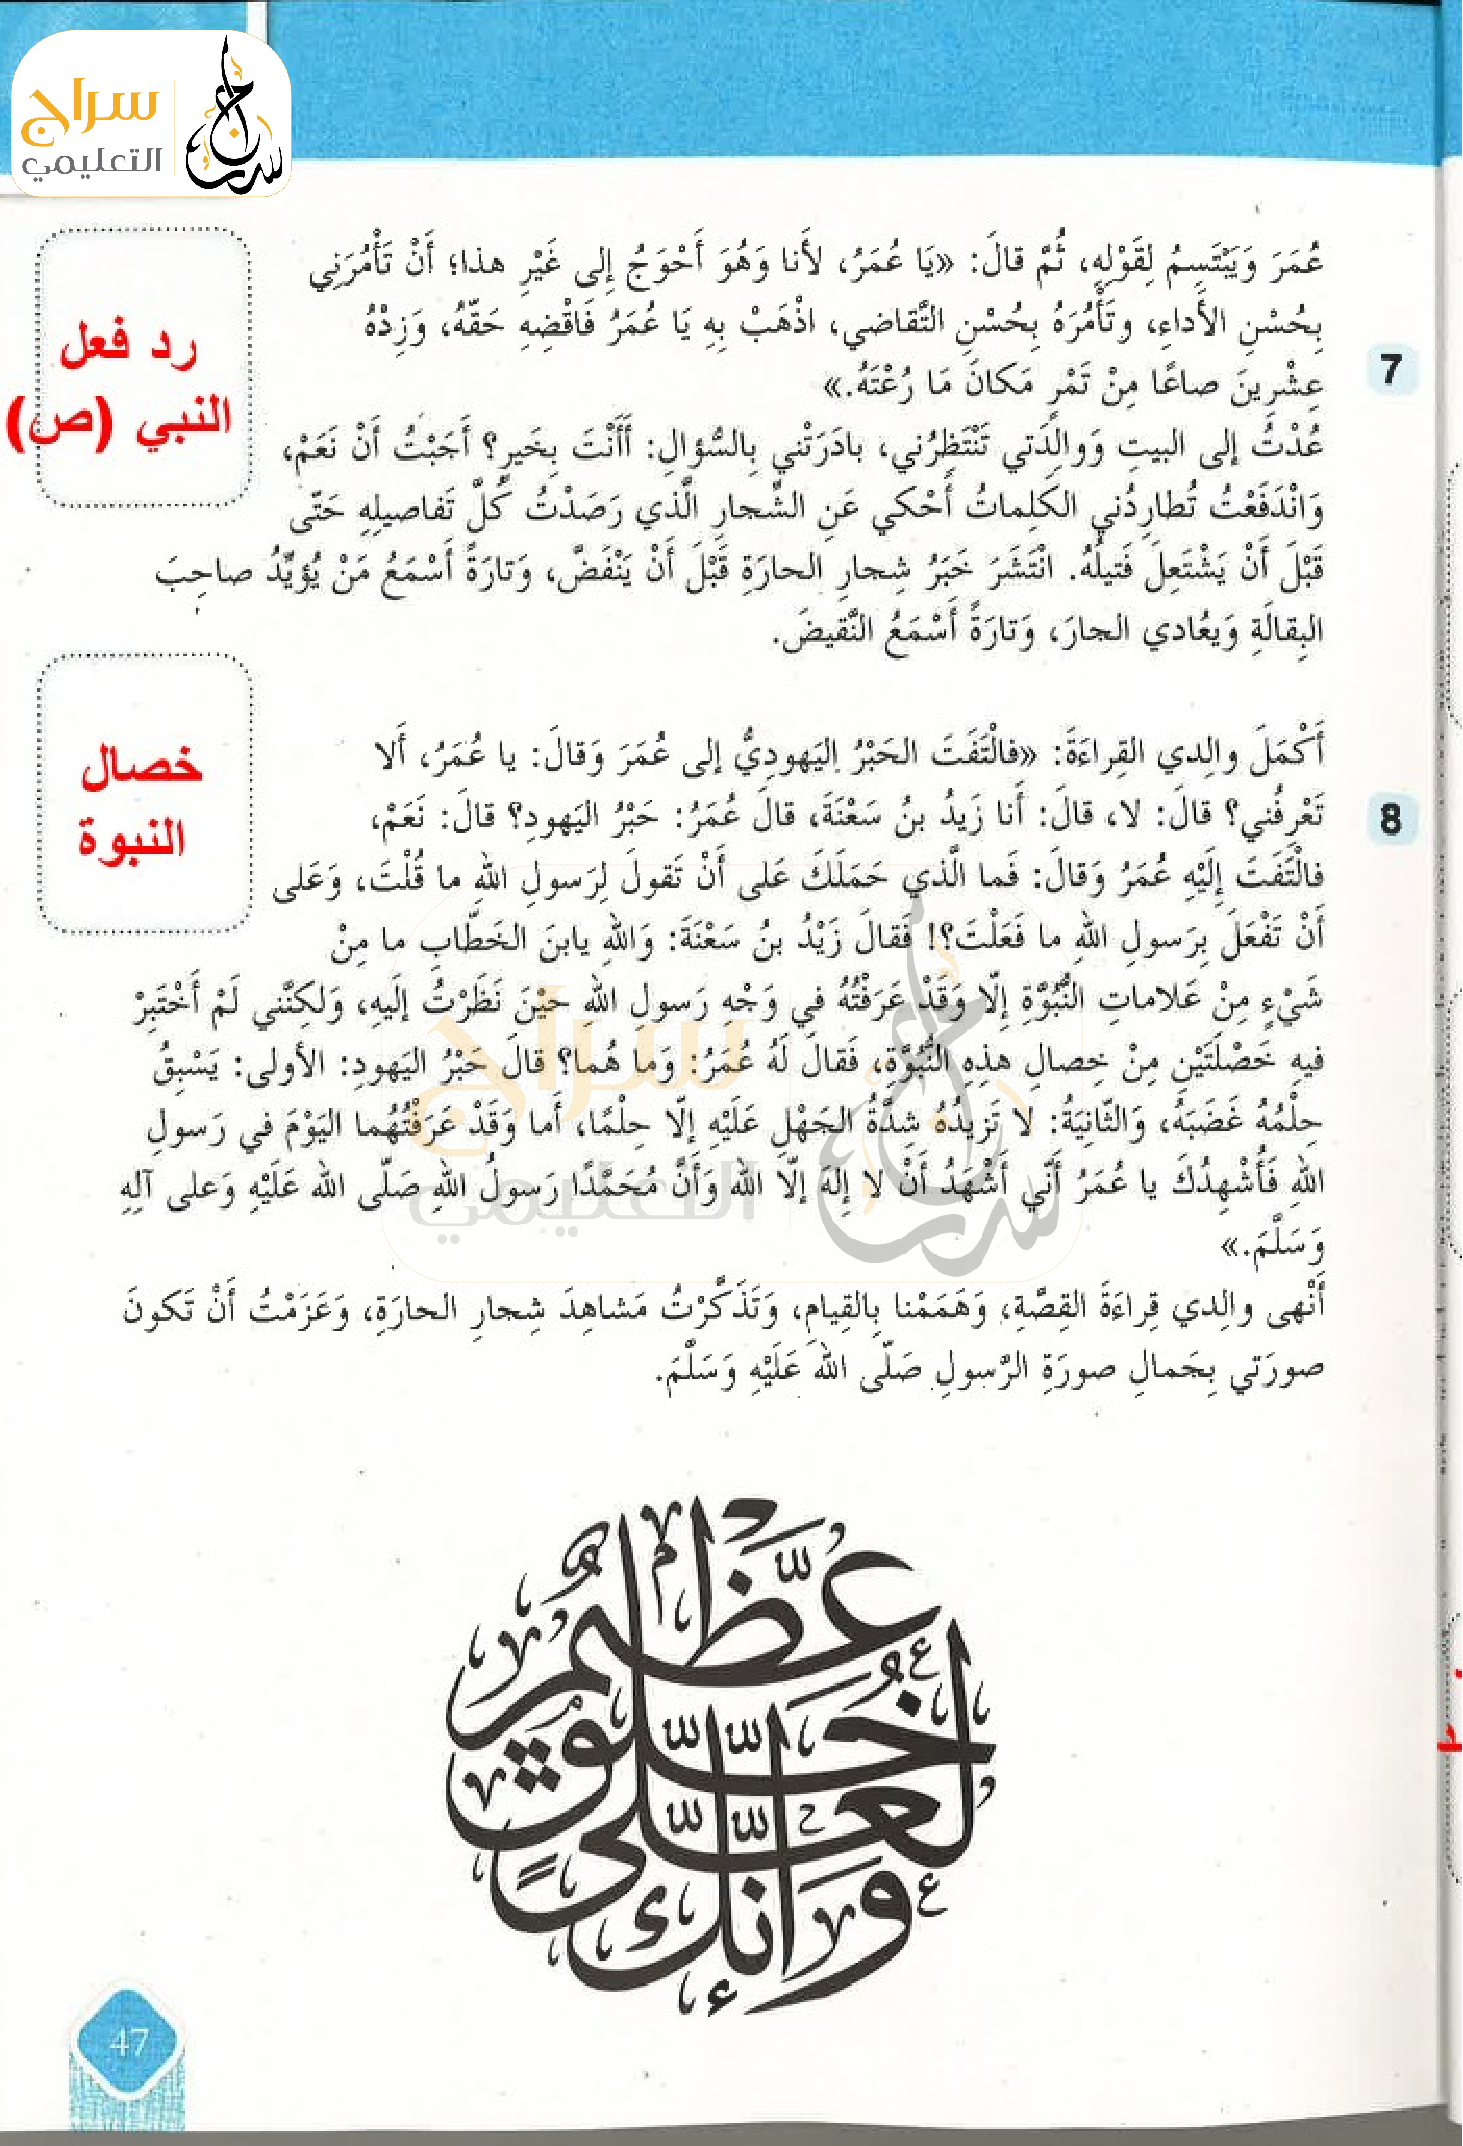 سراج
التعليمي
عُمَرَ وَيَبْتَسِمُ لِقَوْلِهِ، ثُمَّ قالَ: «يَا عُمَرُ، لأَنا وَهُوَ أَحْوَجُ إِلى غَيْرِ هذا؛ أَنْ تَأْمُرَنِي
بِحُسْنِ الأَداءِ، وتَأْمُرَهُ بِحُسْنِ التَّقاضي، اذْهَبْ بِهِ يَا عُمَرُ فَاقْضِهِ حَقَّهُ، وَزِدْهُ
عِشْرِينَ صاعًا مِنْ تَمْرٍ مَكانَ مَا رُعْتَهُ.»
7
رد فعل
النبي (ص)
عُدْتُ إلى البيتِ وَوالِدَتي تَنْتَظِرُني، بادَرَتْني بِالسُّؤالِ: أَأَنْتَ بِخَيرٍ؟ أَجَبْتُ أَنْ نَعَمْ،
وَانْدَفَعْتُ تُطارِدُني الكَلِماتُ أَحْكي عَنِ الشِّجارِ الَّذي رَصَدْتُ كُلَّ تَفاصيلِهِ حَتّى
قَبْلَ أَنْ يَشْتَعِلَ فَتيلُهُ. انْتَشَرَ خَبَرُ شِجارِ الحارَةِ قَبْلَ أَنْ يَنْفَضَّ، وَتارَةً أَسْمَعُ مَنْ يُؤيِّدُ صاحِبَ
البِقالَةِ وَيعُادي الجارَ، وَتارَةً أَسْمَعُ النَّقيضَ.
أَكْمَلَ والِدي القِراءَةَ: «فالْتَفَتَ الحَبْرُ اليَهودِيُّ إلى عُمَرَ وَقالَ: يا عُمَرُ، أَلا
تَعْرِفُني؟ قالَ: لا، قالَ: أَنا زَيدُ بنُ سَعْنَةَ، قالَ عُمَرُ: حَبْرُ اليَهودِ؟ قالَ: نَعَمْ،
8
خصال
النبوة
فالْتَفَتَ إِلَيْهِ عُمَرُ وَقالَ: فَما الَّذي حَمَلَكَ عَلى أَنْ تَقولَ لِرَسولِ اللهِ ما قُلْتَ، وَعَلى
أَنْ تَفْعَلَ بِرَسولِ اللهِ ما فَعَلْتَ؟! فَقالَ زَيْدُ بنُ سَعْنَةَ: وَاللهِ يابنَ الخَطّابِ ما مِنْ
شَيْءٍ مِنْ عَلاماتِ النُّبُوَّةِ إِلّا وَقَدْ عَرَفْتُهُ في وَجْهِ رَسولِ اللهِ حيْنَ نَظَرْتُ إِلَيهِ، وَلكِنَّني لَمْ أَخْتَبِرْ
فيهِ خَصْلَتَيْنِ مِنْ خِصالِ هذِهِ النُّبُوَّةِ، فَقالَ لَهُ عُمَرُ: وَما هُما؟ قالَ حَبْرُ اليَهودِ: الأولى: يَسْبِقُ
حِلْمُهُ غَضَبَهُ، وَالثّانِيَةُ: لا تَزيدُهُ شِدَّةُ الجَهْلِ عَلَيْهِ إِلّا حِلْمًا، أَما وَقَدْ عَرَفْتُهُما اليَوْمَ في رَسولِ
اللهِ فَأُشْهِدُكَ يا عُمَرُ أَنّي أَشْهَدُ أَنْ لا إِلهَ إِلّا الله وَأَنَّ مُحَمَّدًا رَسولُ اللهِ صَلّى الله عَلَيْهِ وَعلى آلِهِ
وَسَلَّمَ.»
أَنْهى والِدي قِراءَةَ القِصَّةِ، وَهَمَمْنا بِالقِيامِ، وَتَذَكَّرْتُ مَشاهِدَ شِجارِ الحارَةِ، وَعَزَمْتُ أَنْ تَكونَ
صورَتي بِجَمالِ صورَةِ الرَّسولِ صَلّى اللهَ عَلَيْهِ وَسَلَّمَ.
وَإِنَّكَ لَعَلَىٰ خُلُقٍ عَظِيمٍ
47